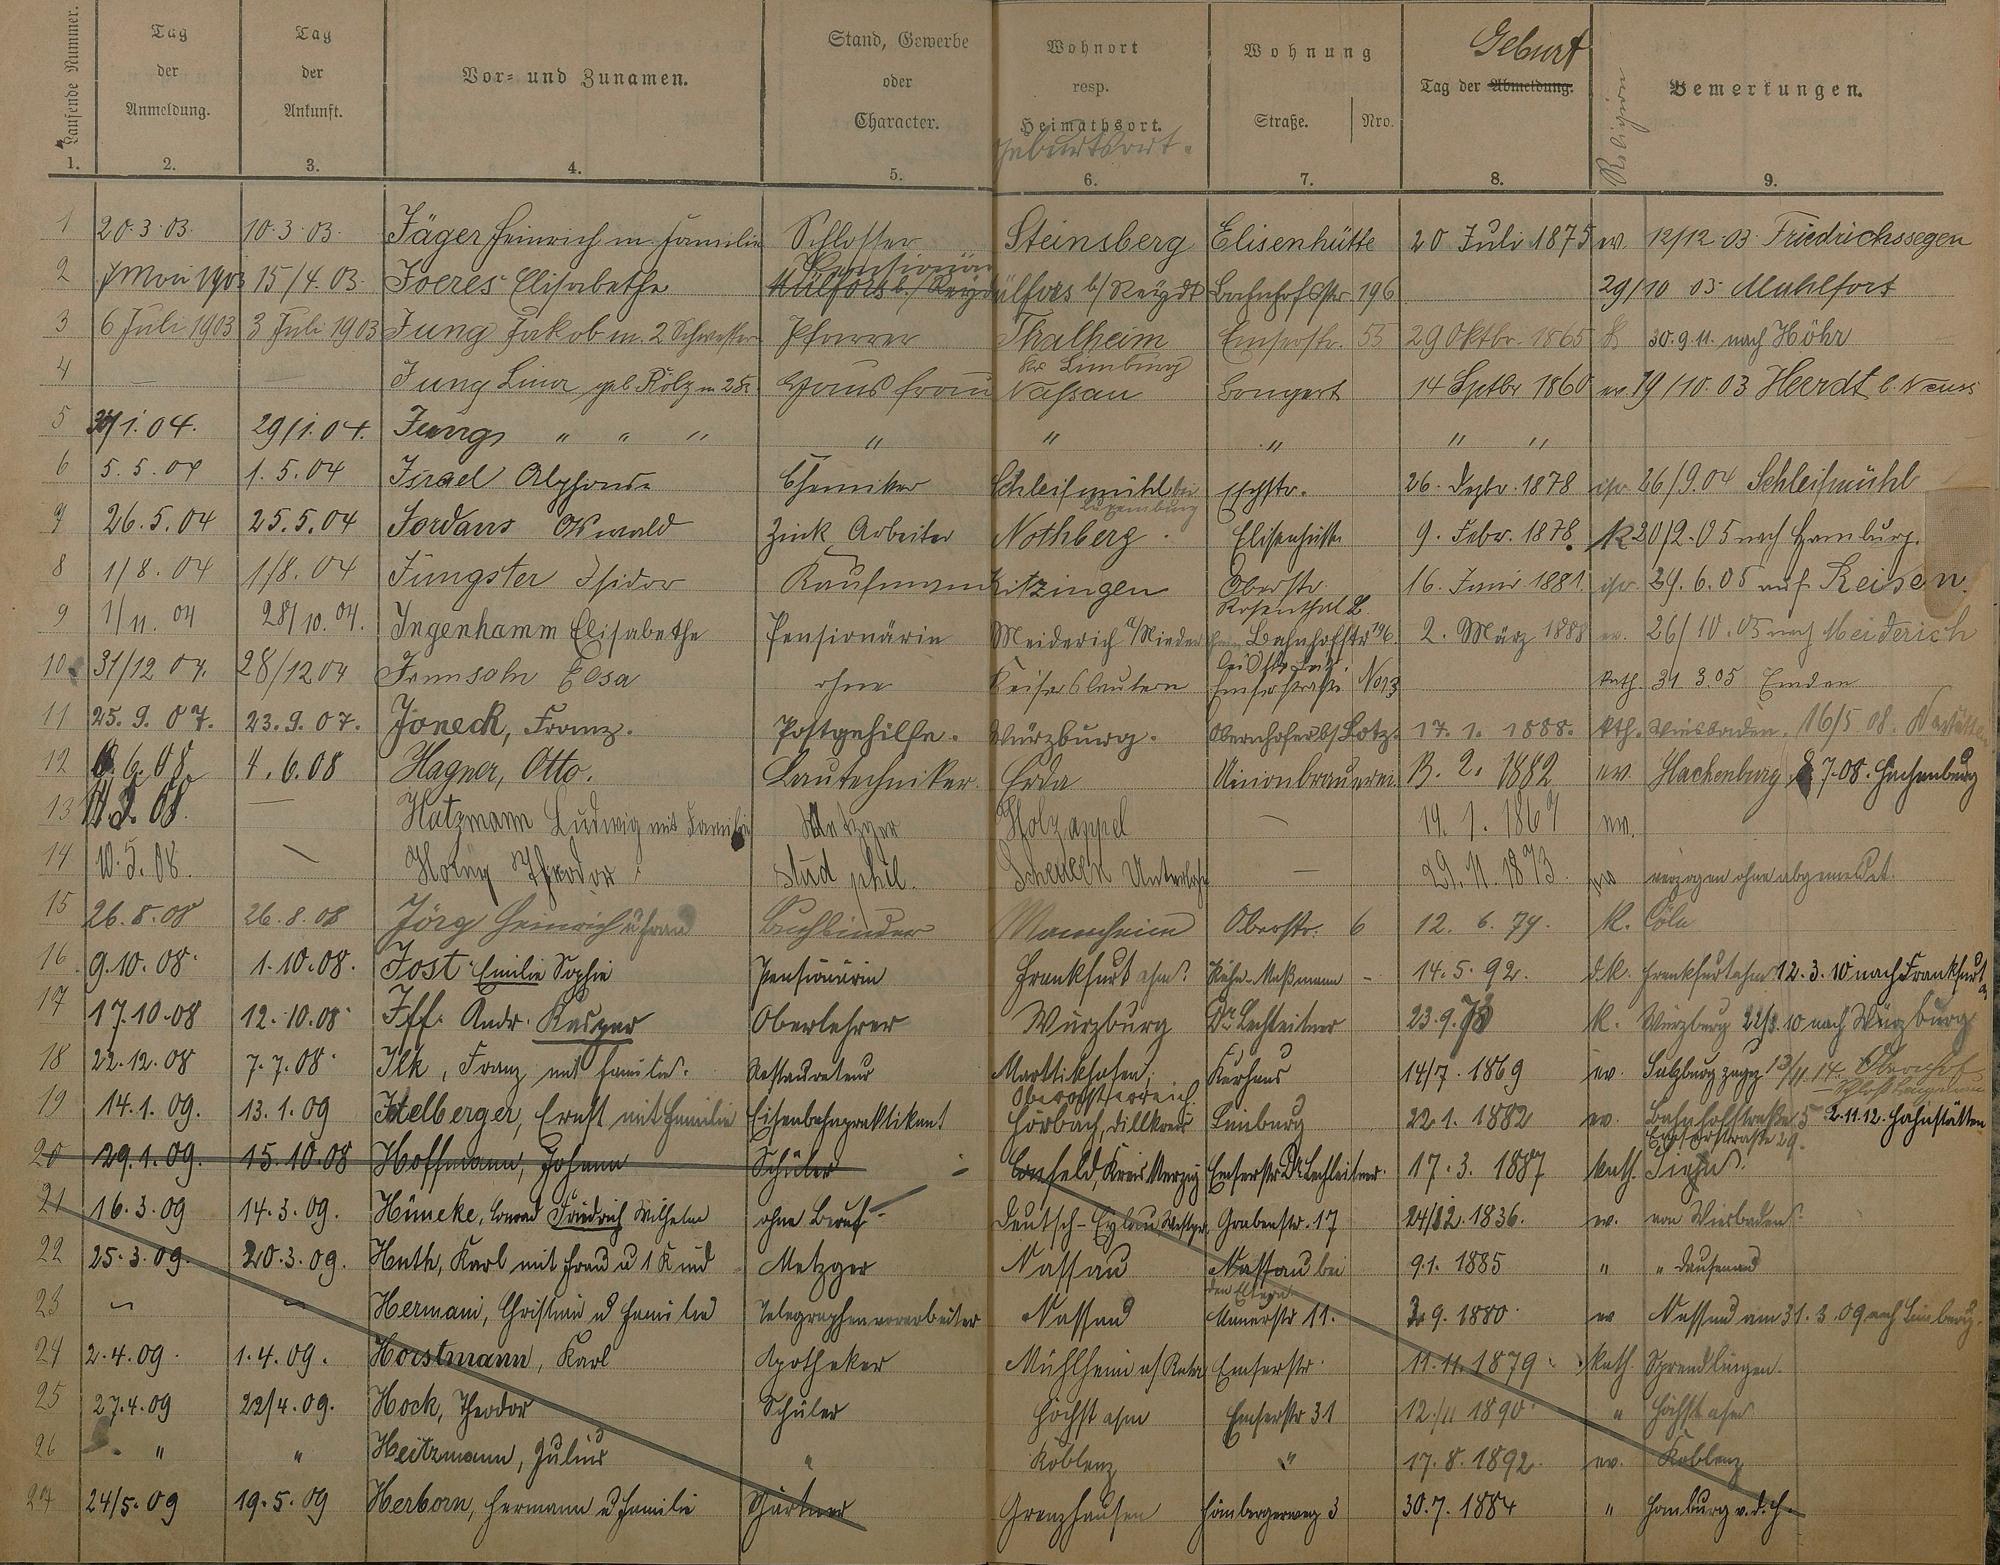 Laufende Nummer. Tag der Anmeldung. Tag der Ankunft. Vor- und Zunamen. Stand, Gewerbe oder Character. Wohnort resp. Heimathsort. Geburtsort. Wohnung Straße. Nro. Geburt Tag der Abmeldung. Religion Bemerkungen.
1. 2. 3. 4. 5. 6. 7. 8. 9.
1 20.3.03. 10.3.03. Jäger Heinrich m. Familie Schlosser Steinsberg Elisenhütte 20 Juli 1875 ev. 12/12 03 Friedrichssegen
2 Mai 1903 15/4.03. Joeres Elisabethe Pensionärin b/ Reydt Bahnhofstr 196 29/10 03 Mühlfort
3 6 Juli 1903 3 Juli 1903 Jung Jakob m. 2 Schwestern Pfarrer Thalheim Kr. Limburg Emserstr. 55 29 Oktbr. 1865 k 30.9.11. nach Höhr
4 — — Jung Lina geb. m 2 K. Hausfrau Nassau Bongert 14 Sptbr 1860 ev. 19/10.03 Heerdt b. Neuss
5 /1.04. 29/1.04. Jung " " " " " " " "
6 5.5.04 1.5.04 Israel Alphonse Chemiker Schleifmühl bei Luxemburg 26. Dezbr. 1878 isr 26/9.04 Schleifmühl
7 26.5.04 25.5.04 Jordans Oswald Zink Arbeiter Nothberg. Elisenhütte 9. Febr. 1878. k 20/2.05 nach Hamburg.
8 1/8.04 1/8.04 Jüngster Isidor Kaufmann Kitzingen Oberstr. 16. Juni 1881. isr 29.6.05 auf Reisen.
9 1/11.04 28/10.04. Ingenhamm Elisabethe Pensionärin Meiderich a/Niederrhein Bahnhofstr 196. 2. März 1888 ev. 26/10.05 nach Meiderich
10 31/12 04. 28/12 04 Elsa ohne Keiserslautern Emserstraße No 13 kath. 31 3.05 Emden
11 25.9.07. 23.9.07. Joneck, Franz. Postgehilfe. Würzburg. Obernhoferb/ Lotz. 17.1.1888. kth. Wiesbaden. 16/5 08.
12 6.08. 4.6.08 Hagner, Otto. Bautechniker. Erda Unionbrauerei 13.2.1882 ev. Hachenburg 8 7.08. Hachenburg
13 .08. — Hatzmann Ludwig mit Familie Metzger Holzappel — 19.1.1867 ev.
14 10.5.08. — Theodor stud phil. — 29.11.1873. verzogen ohne abgemeldet.
15 26.8.08 26.8.08 Jörg Heinrich u. Frau Buchbinder Mannheim Oberstr. 6 12.6.79. k. Cöln
16. 9.10.08. 1.10.08. Jost Emilie Sophie Pensionärin Frankfurt a/m. Kühn-Maßmann - 14.5.92. d.k. Frankfurt a/m 12.3.10 nach Frankfurt
17 17.10.08 12.10.08 Iff. Andr. Kaspar Oberlehrer Würzburg Dr Lechleitner 23.9.78 k. Würzburg 22/3.10 nach Würzburg
18 22.12.08 7.7.08. Ilk, Franz mit Familie. Restaurateur Mattikhofen, Oberösterreich. Kurhaus 14/7.1869 ev. Salzburg 13/11.14. Obernhof
19 14.1.09. 13.1.09 Itelberger, Ernst mit Familie Eisenbahnpraktikant Hörbach, Dillkreis Limburg 22.1.1882 ev. Bahnhofstraße 5 2.11.12. Hahnstätten Emserstraße 29.
20 29.1.09. 15.10.08 Hoffmann, Johann Schüler Kreis Merzig Emserstr Dr Lechleitner. 17.3.1887 kath.
21 16.3.09 14.3.09. Hüneke, Conrad Friedrich Wilhelm ohne Beruf Deutsch-Eylau, Westpr. Grabenstr. 17 24/12.1836. ev. von Wiesbaden
22 25.3.09. 20.3.09. Huth, Karl mit Frau u 1 Kind Metzger Nassau Nassau bei den Eltern 9.1.1885 " " Dausenau
23 " " Hermani, Christian u Familie Telegraphenvorarbeiter Nassau Mauerstr 11. 2.9.1880. ev Nassau am 31.3.09 nach Limburg.
24 2.4.09. 1.4.09. Horstmann, Karl Apotheker Mühlheim a/ Ruhr Emserstr. 11.11.1879. kath. Sprendlingen.
25 27.4.09 22/4.09. Hock, Theodor Schüler Höchst a/m Emserstr 31 12/11 1890. " Höchst a/m
26 " " Heitzmann, Julius " Koblenz " 17.8.1892. ev. Koblenz
27 24/5.09 19.5.09 Herborn, Hermann u Familie Gärtner Grenzhausen Hömbergerweg 3 30.7.1884 " Homburg v.d.H.